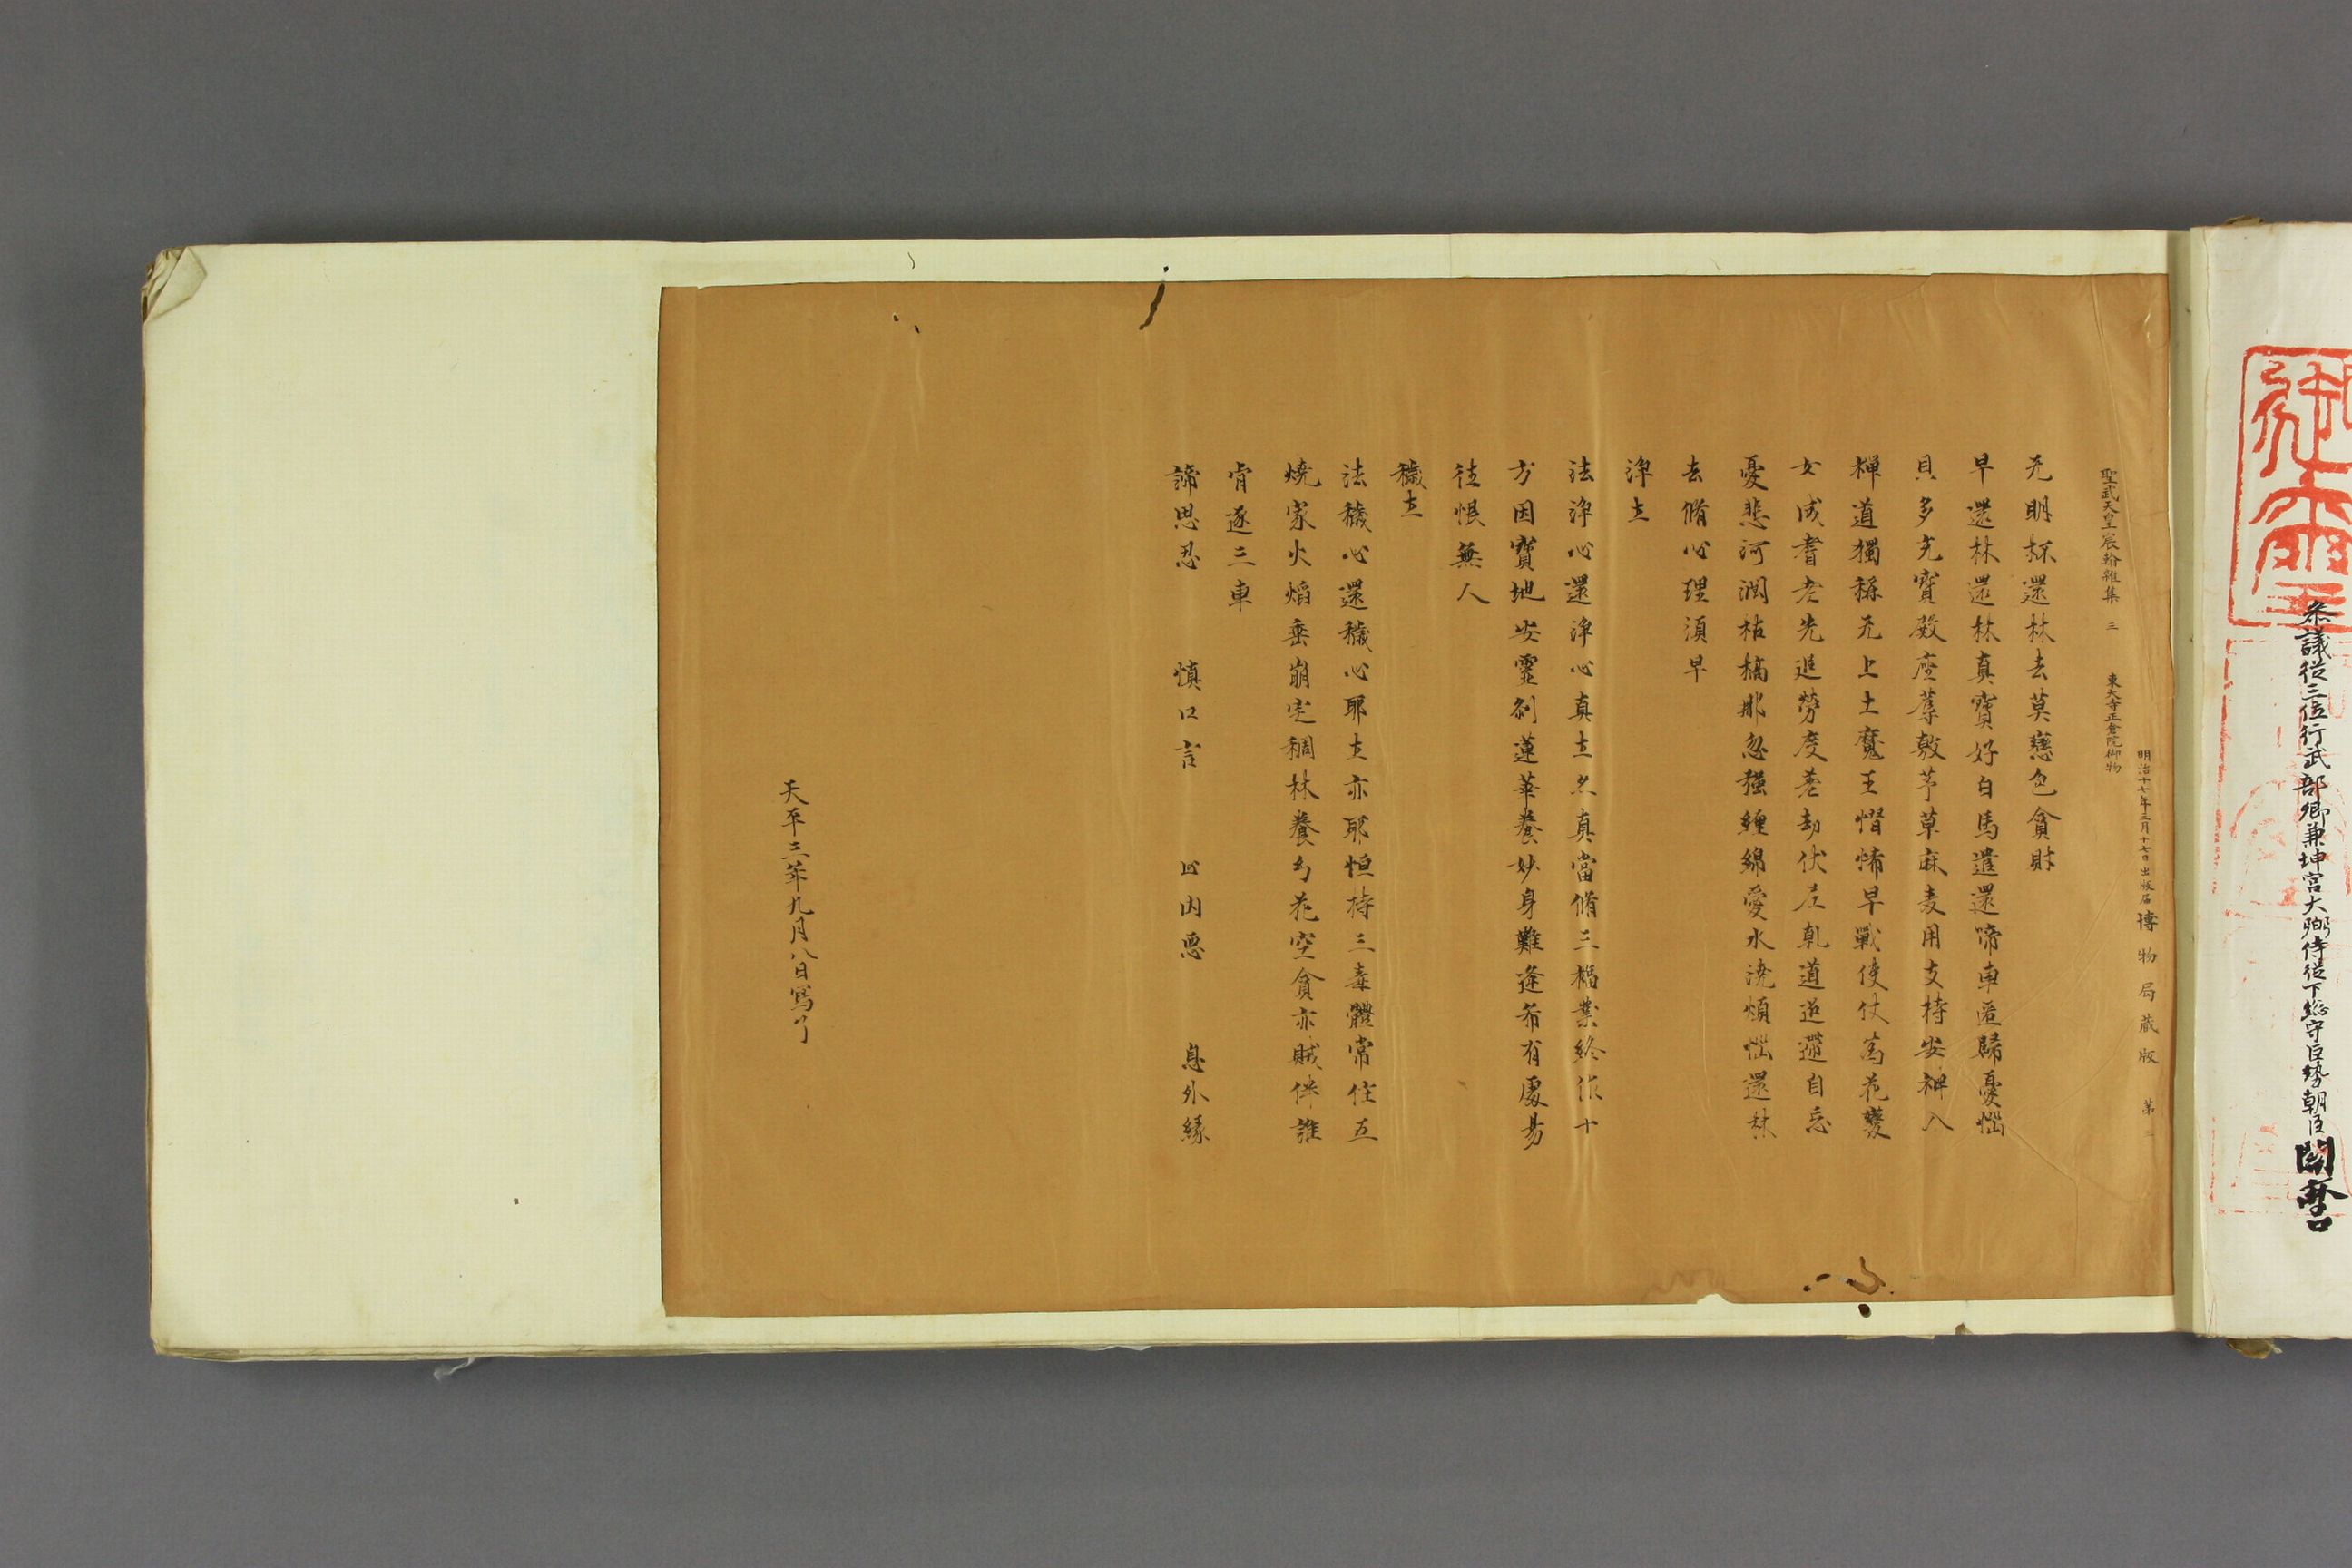 參議從三位行武部卿兼坤宮大弼侍從下総守巨勢朝臣関麿
明治十七年三月十七日出版届 博物局蔵版 第
聖武天皇宸翰雜集 三 東大寺正倉院御物
无明杯還林去莫戀色貪財
早還林還林真寶好白馬遣還啼車匿歸憂惱
貝多充寶殿座蓐敷草麻麦用支持安禅入
禅道獨稱无上士魔王慴怖早戰使仗為花變
女成耆老先追勞度差劫伏尼乹道逆還自忘
憂悲河潤枯槁那忽强纏綿愛水澆煩惱還林
去脩心理須早
淨土
法淨心還淨心真土亦真當脩三福業終作十
方因寶地安靈刹蓮華養妙身難逢希有處易
往恨無人
穢土
法穢心還穢心耶土亦耶恒持三毒體常住五
燒家火焰垂崩宅稠林養幻花空貪亦賊伴誰
肯逐三車
諦思忍 慎口言 止内悪 息外緣
天平三年九月八日寫了